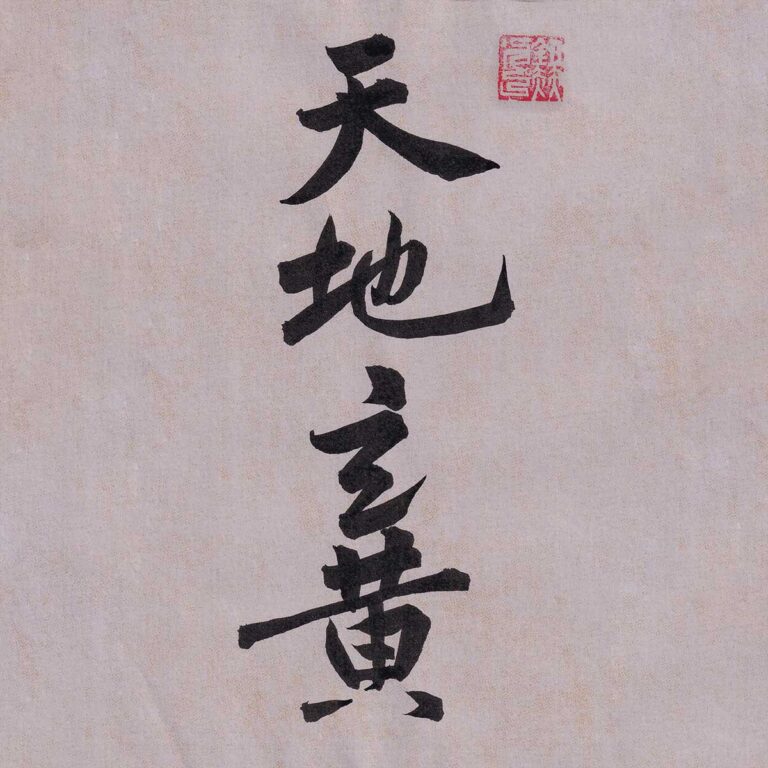 天地玄黄